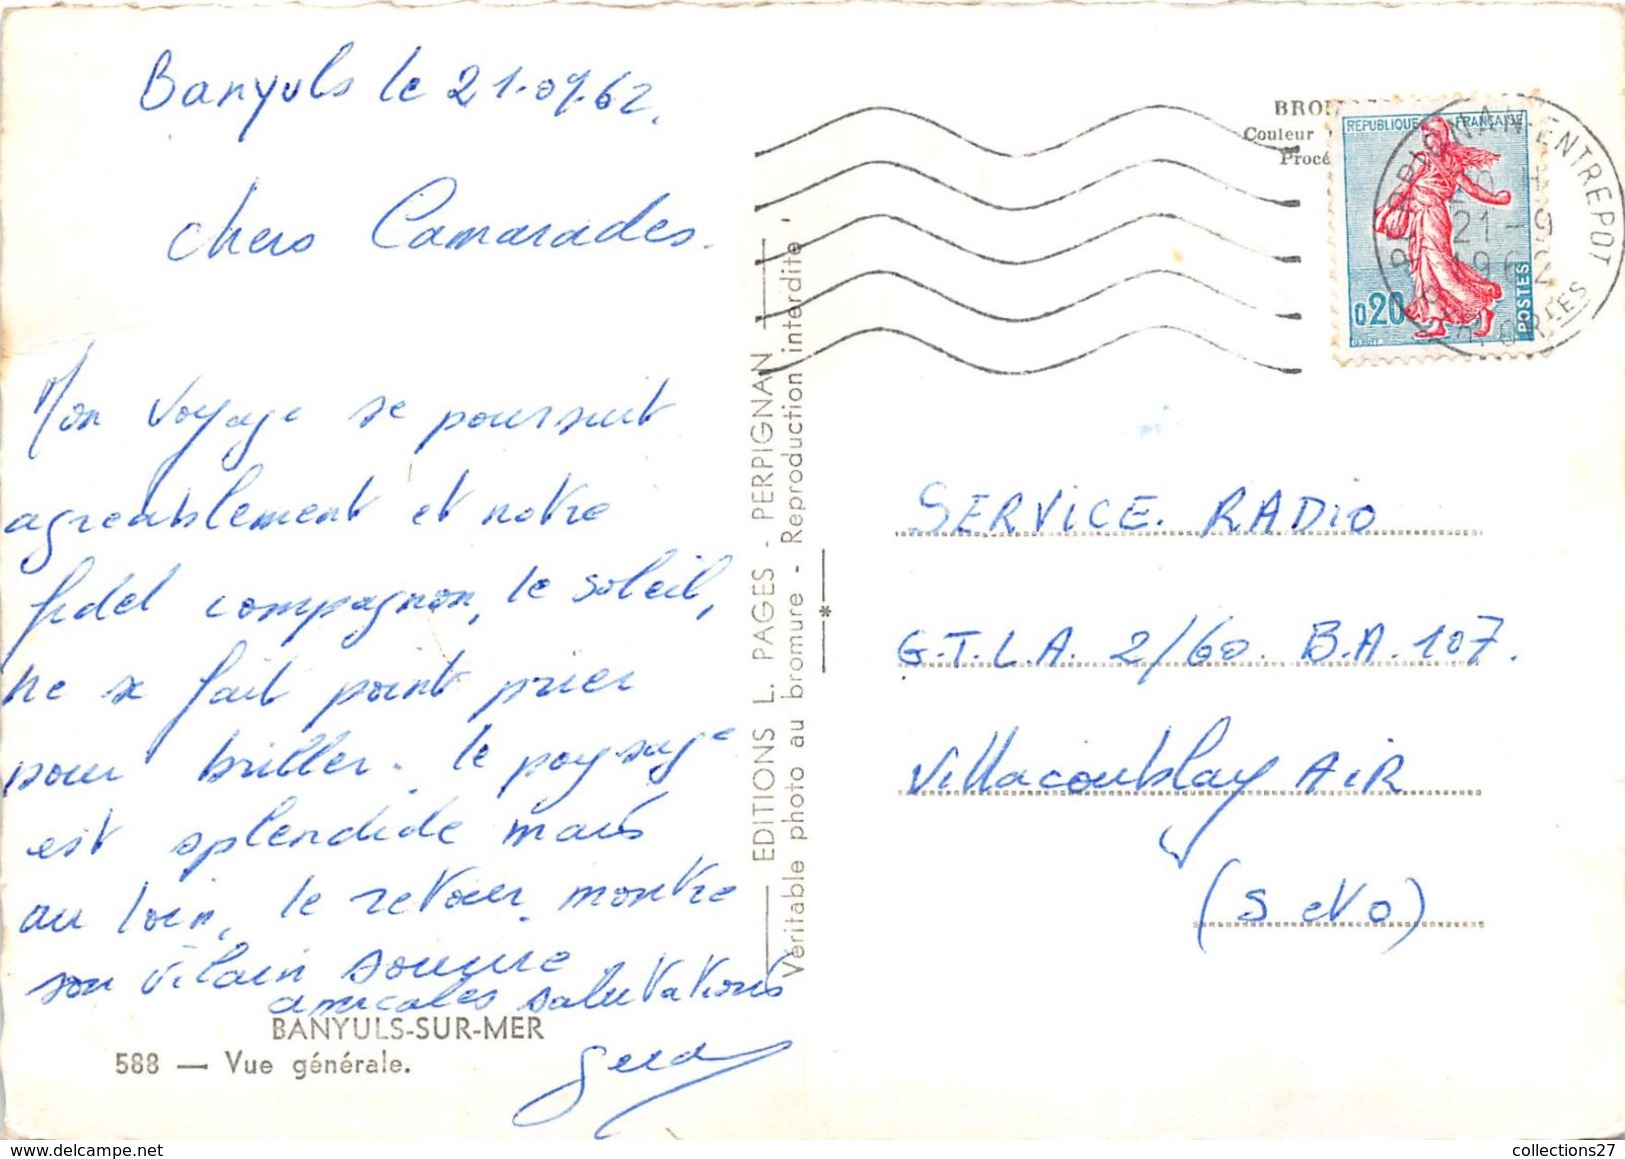 Banyuls le 21.09.62.
Chers Camarades.
Mon voyage se poursuit
agreablement et notre
fidel compagnon, le soleil,
ne se fait point prier
pour briller. le paysage
est splendide mais
au loin, le retour montre
son vilain sourire
amicales salutations
BANYULS-SUR-MER
588 — Vue générale.
EDITIONS L. PAGES - PERPIGNAN
Véritable photo au bromure - Reproduction interdite
Couleur
REPUBLIQUE FRANÇAISE
0,20
POSTES
PERPIGNAN-ENTREPOT
21-9
1962
SERVICE. RADIO
G.T.L.A. 2/60. B.A. 107.
Villacoublay AIR
(S et O)
collections27